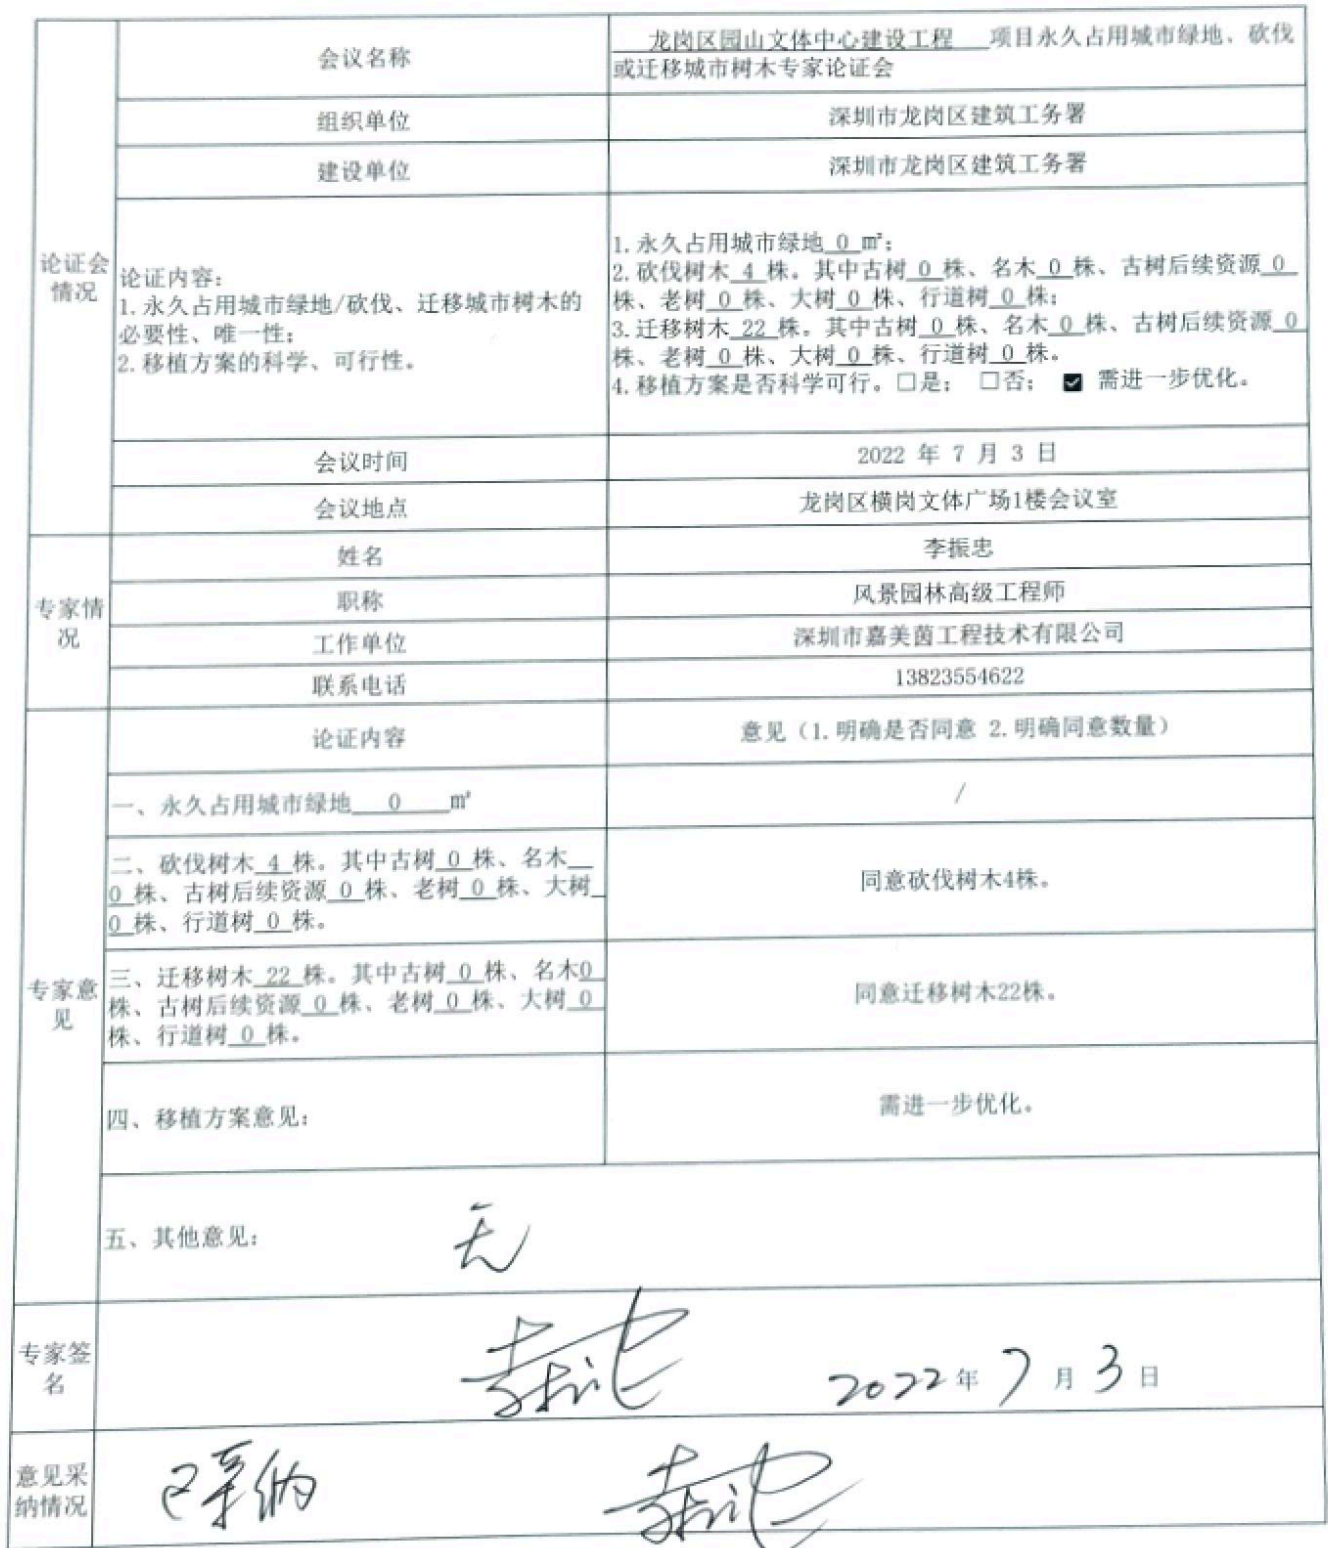 论证会
情况
会议名称
龙岗区园山文体中心建设工程 项目永久占用城市绿地、砍伐
或迁移城市树木专家论证会
组织单位
深圳市龙岗区建筑工务署
建设单位
深圳市龙岗区建筑工务署
论证内容：
1.永久占用城市绿地/砍伐、迁移城市树木的
必要性、唯一性；
2.移植方案的科学、可行性。
1.永久占用城市绿地 0 ㎡；
2.砍伐树木 4 株。其中古树 0 株、名木 0 株、古树后续资源 0
株、老树 0 株、大树 0 株、行道树 0 株；
3.迁移树木 22 株。其中古树 0 株、名木 0 株、古树后续资源 0
株、老树 0 株、大树 0 株、行道树 0 株。
4.移植方案是否科学可行。□是； □否； ☑ 需进一步优化。
会议时间
2022 年 7 月 3 日
会议地点
龙岗区横岗文体广场1楼会议室
专家情
况
姓名
李振忠
职称
风景园林高级工程师
工作单位
深圳市嘉美茵工程技术有限公司
联系电话
13823554622
专家意
见
论证内容
意见（1.明确是否同意 2.明确同意数量）
一、永久占用城市绿地 0 ㎡
/
二、砍伐树木 4 株。其中古树 0 株、名木
0 株、古树后续资源 0 株、老树 0 株、大树
0 株、行道树 0 株。
同意砍伐树木4株。
三、迁移树木 22 株。其中古树 0 株、名木0
株、古树后续资源 0 株、老树 0 株、大树 0
株、行道树 0 株。
同意迁移树木22株。
四、移植方案意见：
需进一步优化。
五、其他意见：
无
专家签
名
2022年 7 月 3 日
意见采
纳情况
已采纳